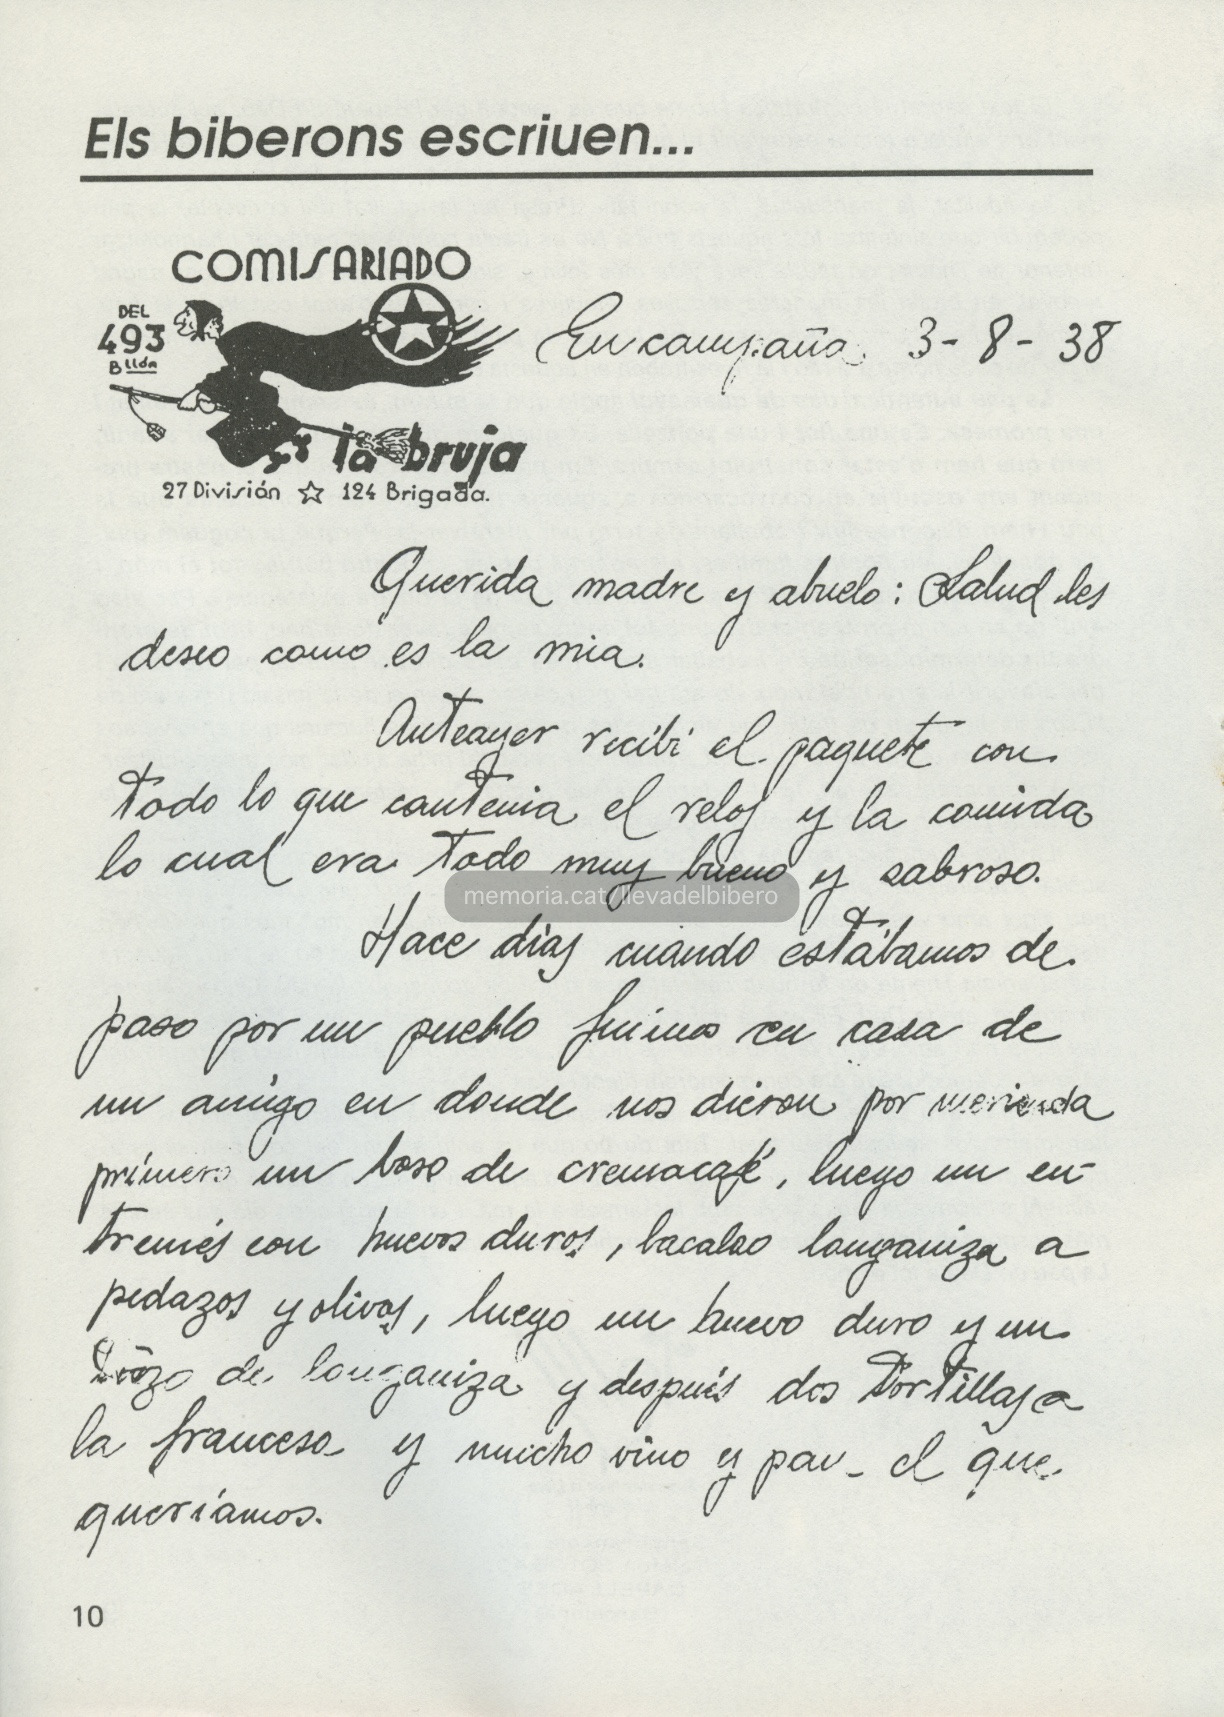 Els biberons escriuen...
COMISARIADO
DEL
493
Bllón
la bruja
27 División ☆ 124 Brigada.
En campaña 3-8-38
Querida madre y abuelo: Salud les
deseo como es la mia.
Anteayer recibí el paquete con
todo lo que contenia el reloj y la comida
lo cual era todo muy bueno y sabroso.
memoria.cat/llevadelbibero
Hace días cuando estábamos de
paso por un pueblo fuimos en casa de
un amigo en donde nos dieron por merienda
primero un baso de cremacafé, luego un en-
tremés con huevos duros, bacalao longaniza a
pedazos y olivas, luego un huevo duro y un
trozo de longaniza y después dos tortillas a
la francesa y mucho vino y pan - el que
queríamos.
10